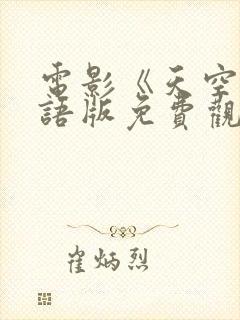 電影《天空
語版免費觀
崔炳烈